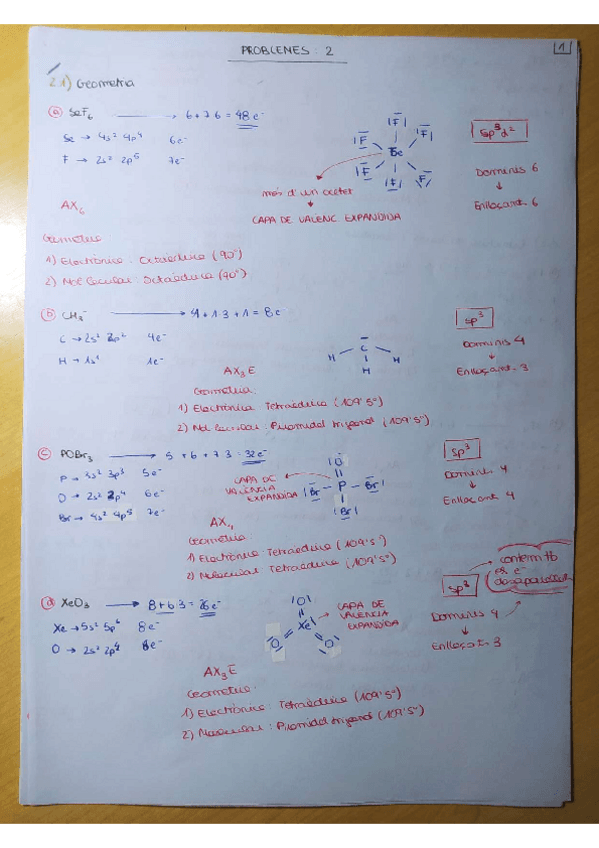 PROBLEMES : 2
1
2.1) Geometria
a) SeF6 → 6+7·6 = 48 e-
Se → 4s² 4p⁴ 6e-
F → 2s² 2p⁵ 7e-
sp³d²
Dominis 6
↓
Enllaçant. 6
més d'un octet
↓
CAPA DE VALENC. EXPANDIDA
AX6
Geometria
1) Electrònica : Octaèdrica (90°)
2) Molecular : Octaèdrica (90°)
b) CH3- → 4+1·3+1 = 8e-
C → 2s² 2p² 4e-
H → 1s¹ 1e-
sp³
Dominis 4
↓
Enllaçant. 3
AX3E
Geometria.
1) Electrònica Tetraèdrica (109'5°)
2) Molecular : Piramidal trigonal (109'5°)
c) POBr3 → 5+6+7·3 = 32 e-
P → 3s² 3p³ 5e-
O → 2s² 2p⁴ 6e-
Br → 4s² 4p⁵ 7e-
CAPA DE
VALÈNCIA
EXPANDIDA
sp³
Dominis 4
↓
Enllaçant 4
AX4
Geometria.
1) Electrònica : Tetraèdrica (109'5°)
2) Molecular : Tetraèdrica (109'5°)
d) XeO3 → 8+6·3 = 26 e-
Xe → 5s² 5p⁶ 8e-
O → 2s² 2p⁴ 6e-
CAPA DE
VALÈNCIA
EXPANDIDA
sp³
Dominis 4
↓
Enllaçat. 3
AX3E
Geometria.
1) Electrònica : Tetraèdrica (109'5°)
2) Molecular : Piramidal trigonal (109'5°)